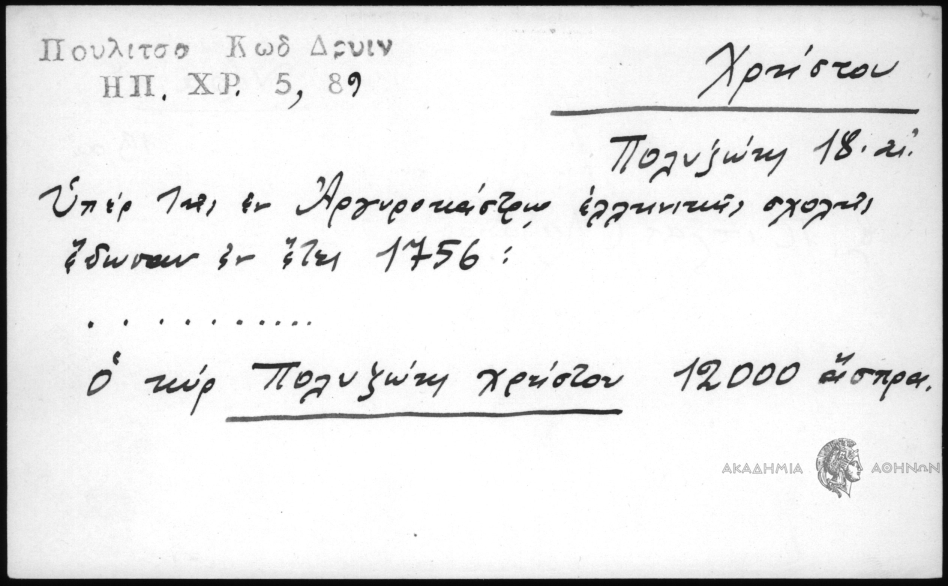 Πουλιτσα Κωδ Δρυιν
ΗΠ. ΧΡ. 5, 89
Χρήστου
Πολυζώη 18. αἰ.
Ὑπὲρ τῆς ἐν Ἀργυροκάστρῳ ἑλληνικῆς σχολῆς
ἔδωσαν ἐν ἔτει 1756 :
. . . . . . . . . . .
Ὁ κὺρ Πολυζώη χρήστου 12000 ἄσπρα.
ΑΚΑΔΗΜΙΑ ΑΘΗΝΩΝ